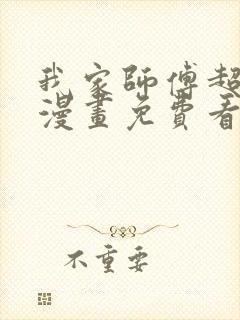 我家師傅超
漫畫免費看
不重要